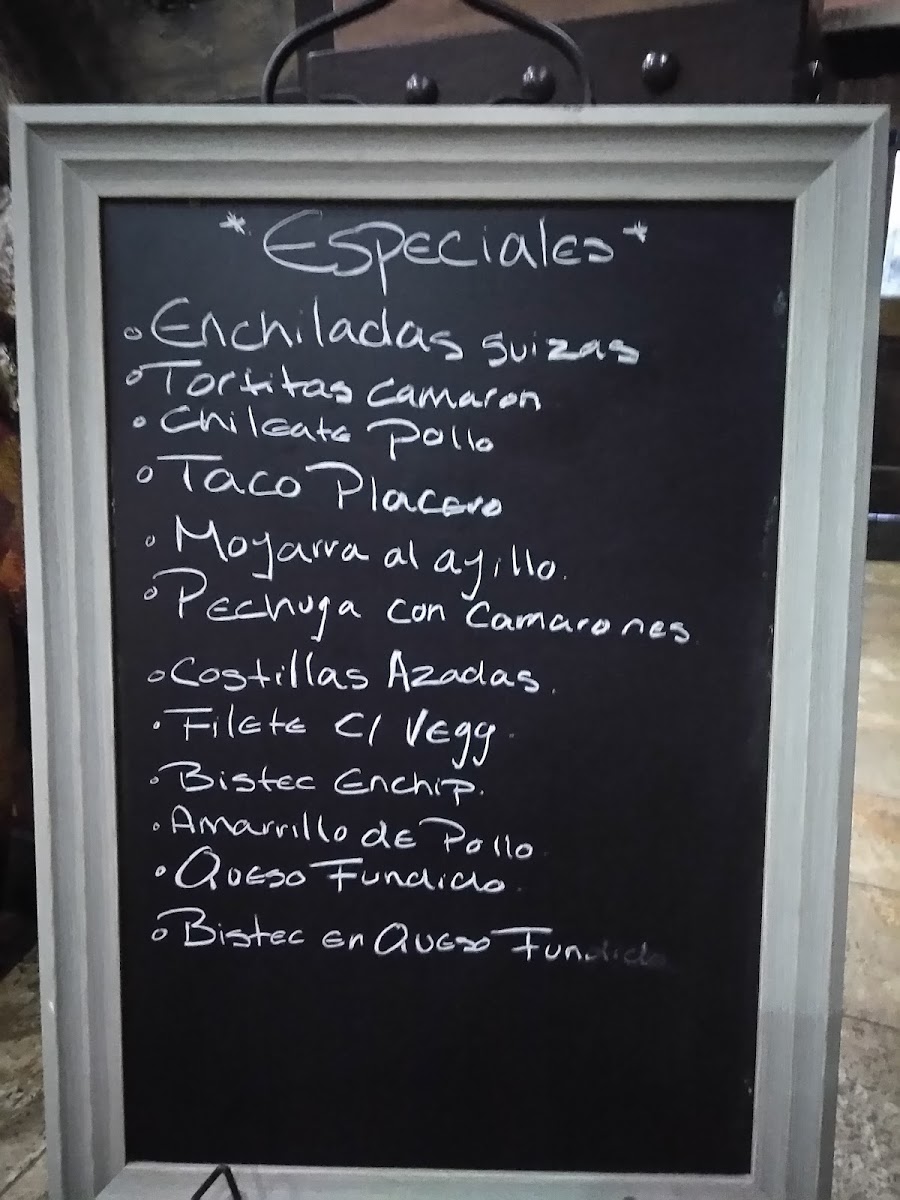 *Especiales*
Enchiladas suizas
Tortitas camaron
Chileate pollo
Taco Placero
Moyarra al ayillo.
Pechuga con camarones.
Costillas Azadas.
Filete C/ Vegg.
Bistec Enchip.
Amarrillo de Pollo
Queso Fundido.
Bistec en Queso Fundido